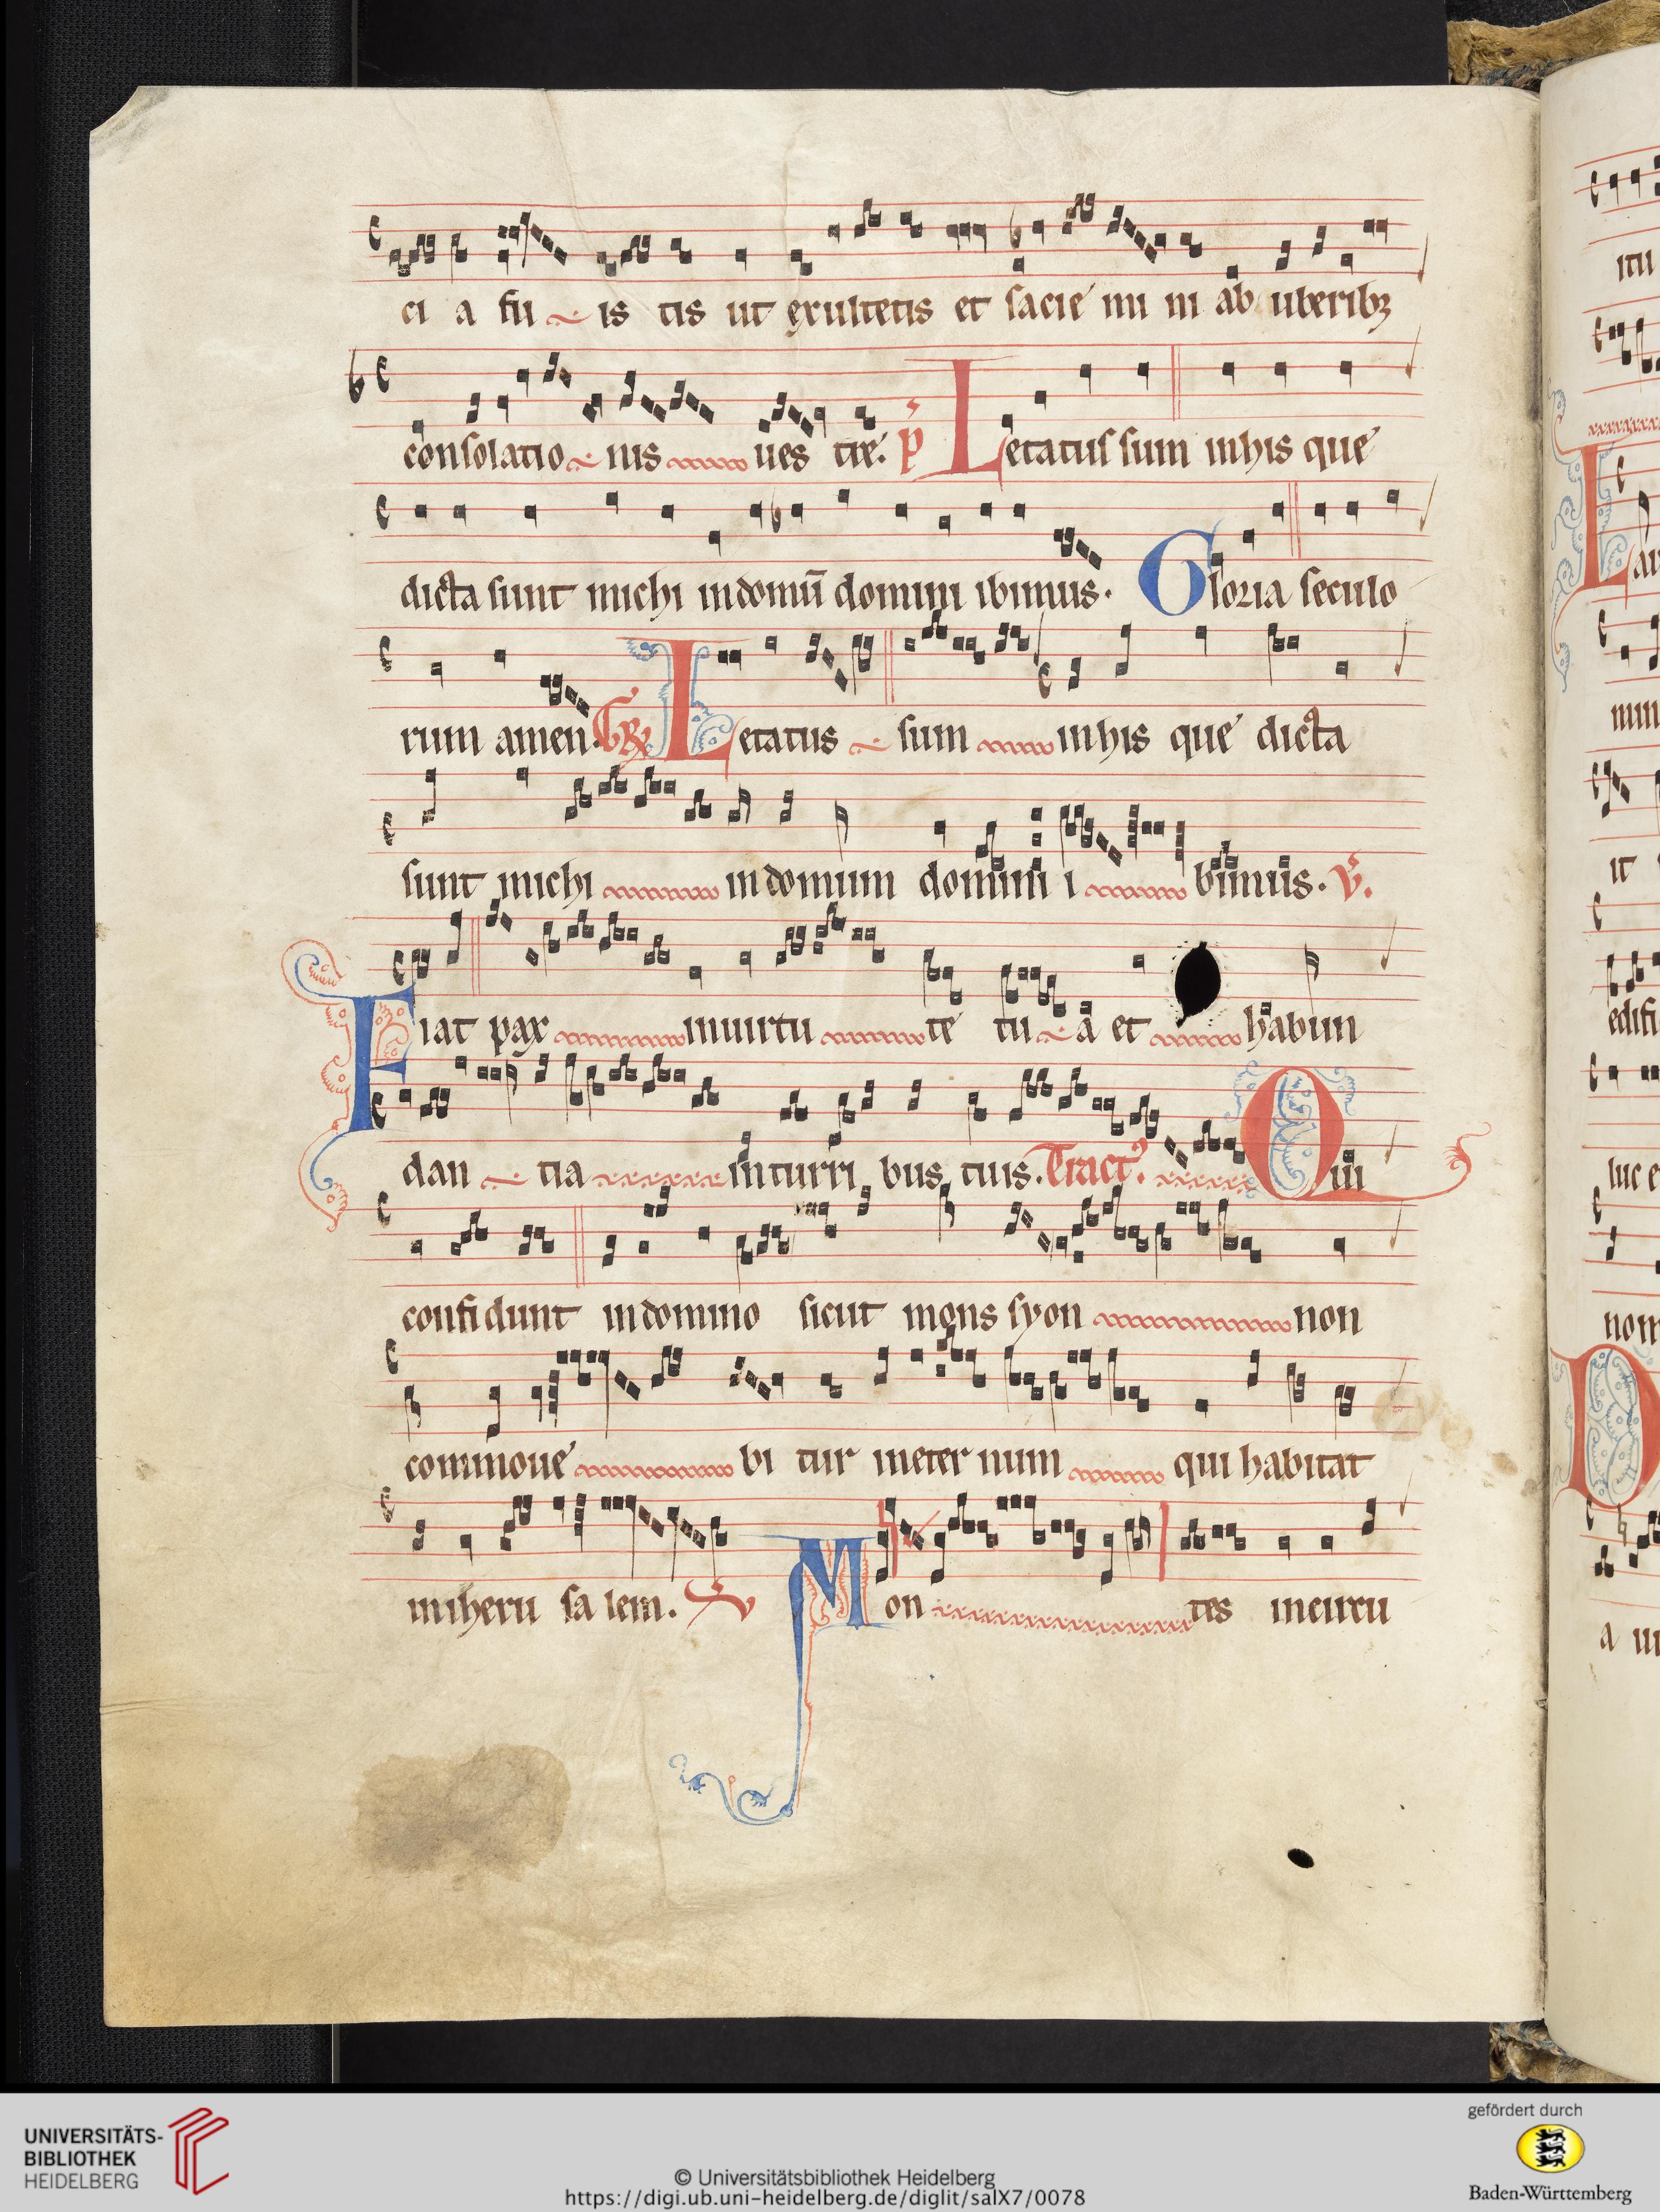 ci a fu is tis ut exultetis et sacie mi ni ab uberibꝫ
consolatio nis ues tre. p̱s Letatus sum inhis que
dicta sunt michi indomū domini ibimus. Gloria seculo
rum amen. GR Letatus sum inhis que dicta
sunt michi indomum domini i bimus. V̕.
Fiat pax inuirtu te tu a et habun
dan tia inturri bus tuis. Tract9. Qui
confidunt indomino sicut mons syon non
commoue bi tur ineter num qui habitat
iniheru sa lem. V Mon tes incircu
itu
minu
it
edifi
luc e
nom
a
UNIVERSITÄTS-
BIBLIOTHEK
HEIDELBERG
© Universitätsbibliothek Heidelberg
https://digi.ub.uni-heidelberg.de/diglit/salX7/0078
gefördert durch
Baden-Württemberg